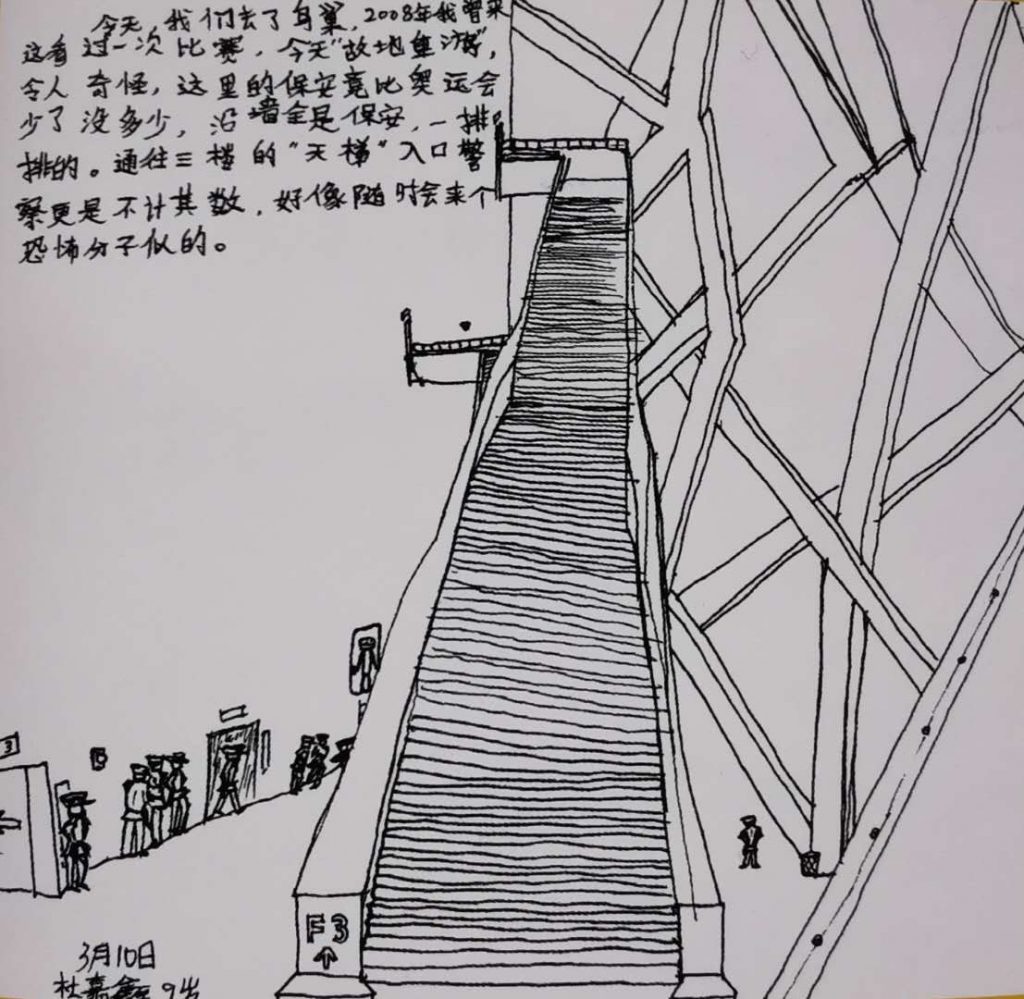 今天,我们去了鸟巢,2008年我曾来
这看过一次比赛,今天“故地重游”,
令人奇怪,这里的保安竟比奥运会
少了没多少,沿墙全是保安,一排
排的。通往三楼的“天梯”入口警
察更是不计其数,好像随时会来个
恐怖分子似的。
3
F3
3月10日
杜嘉 9岁